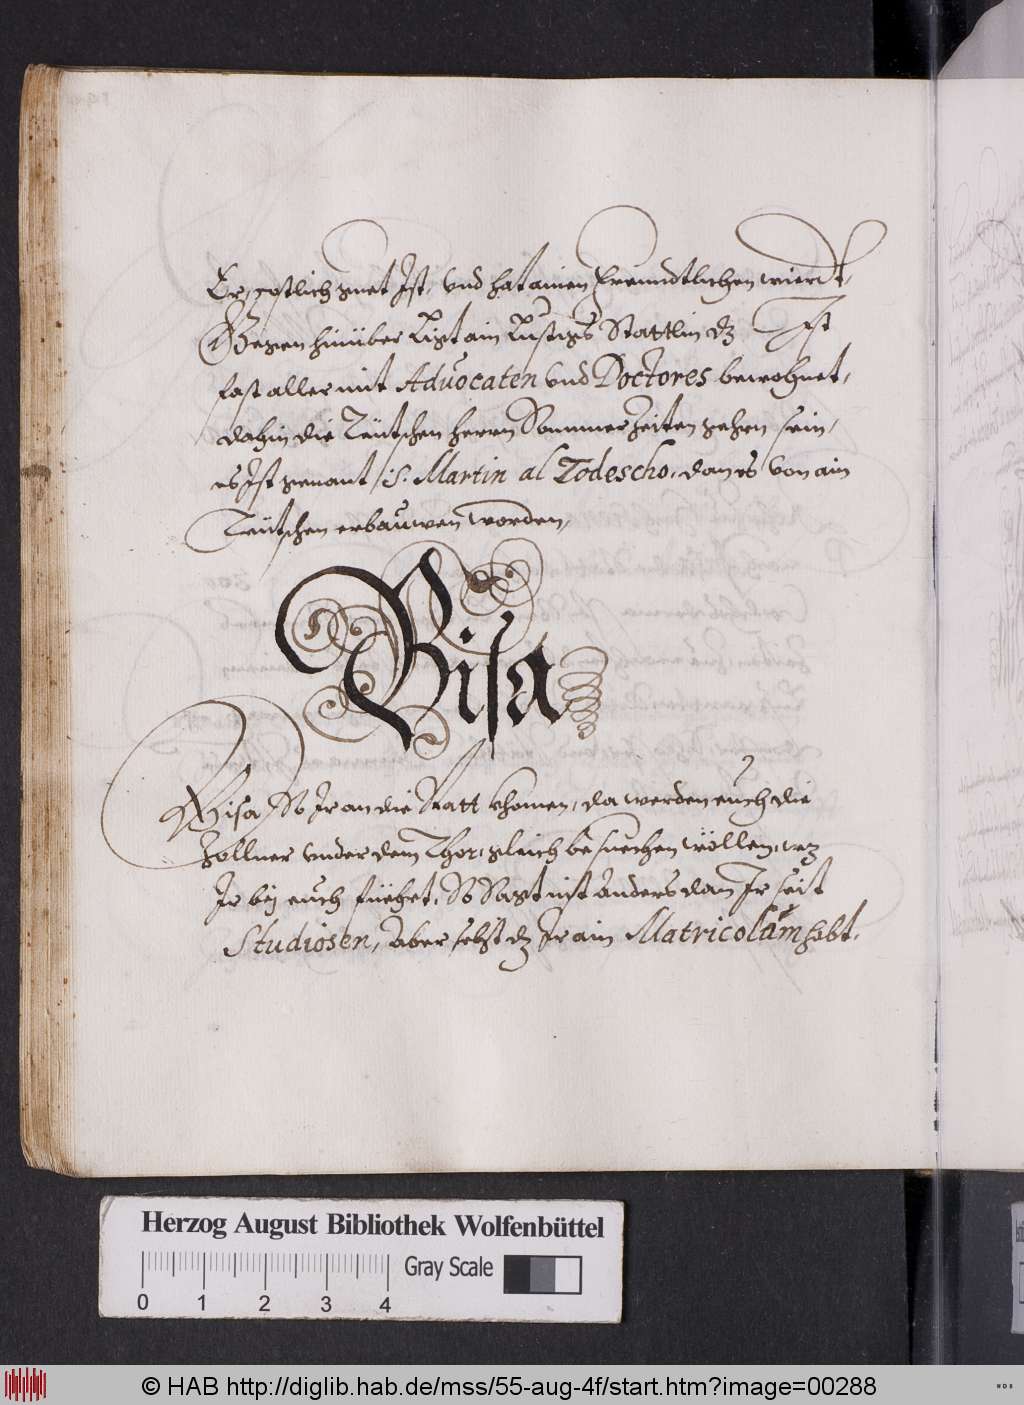 Er, gostlich guet Ist, vnd hat ainen freundtlichen wierdt,
Gegen hinüber Ligt ain Lustigs Stättlin dz Ist
fast aller mit Aduocaten vnd Doctores bewohnet,
dahin die Teütschen herrn Sommerzeiten gehen sein,
es Ist genant S: Martin al Todescho, dan es von ain
Teütschen erbauwen worden,
Pisa
Pisa, So Ir an die Statt khomen, da werden euch die
Zollner vnder dem Thor, gleich besuechen wöllen, wz
Ir bej euch füehret, So Sagt nist Anders dan Ir seit
Studiosen, Aber sehst dz Ir ain Matricolam habt,
Herzog August Bibliothek Wolfenbüttel
Gray Scale
0 1 2 3 4
© HAB http://diglib.hab.de/mss/55-aug-4f/start.htm?image=00288